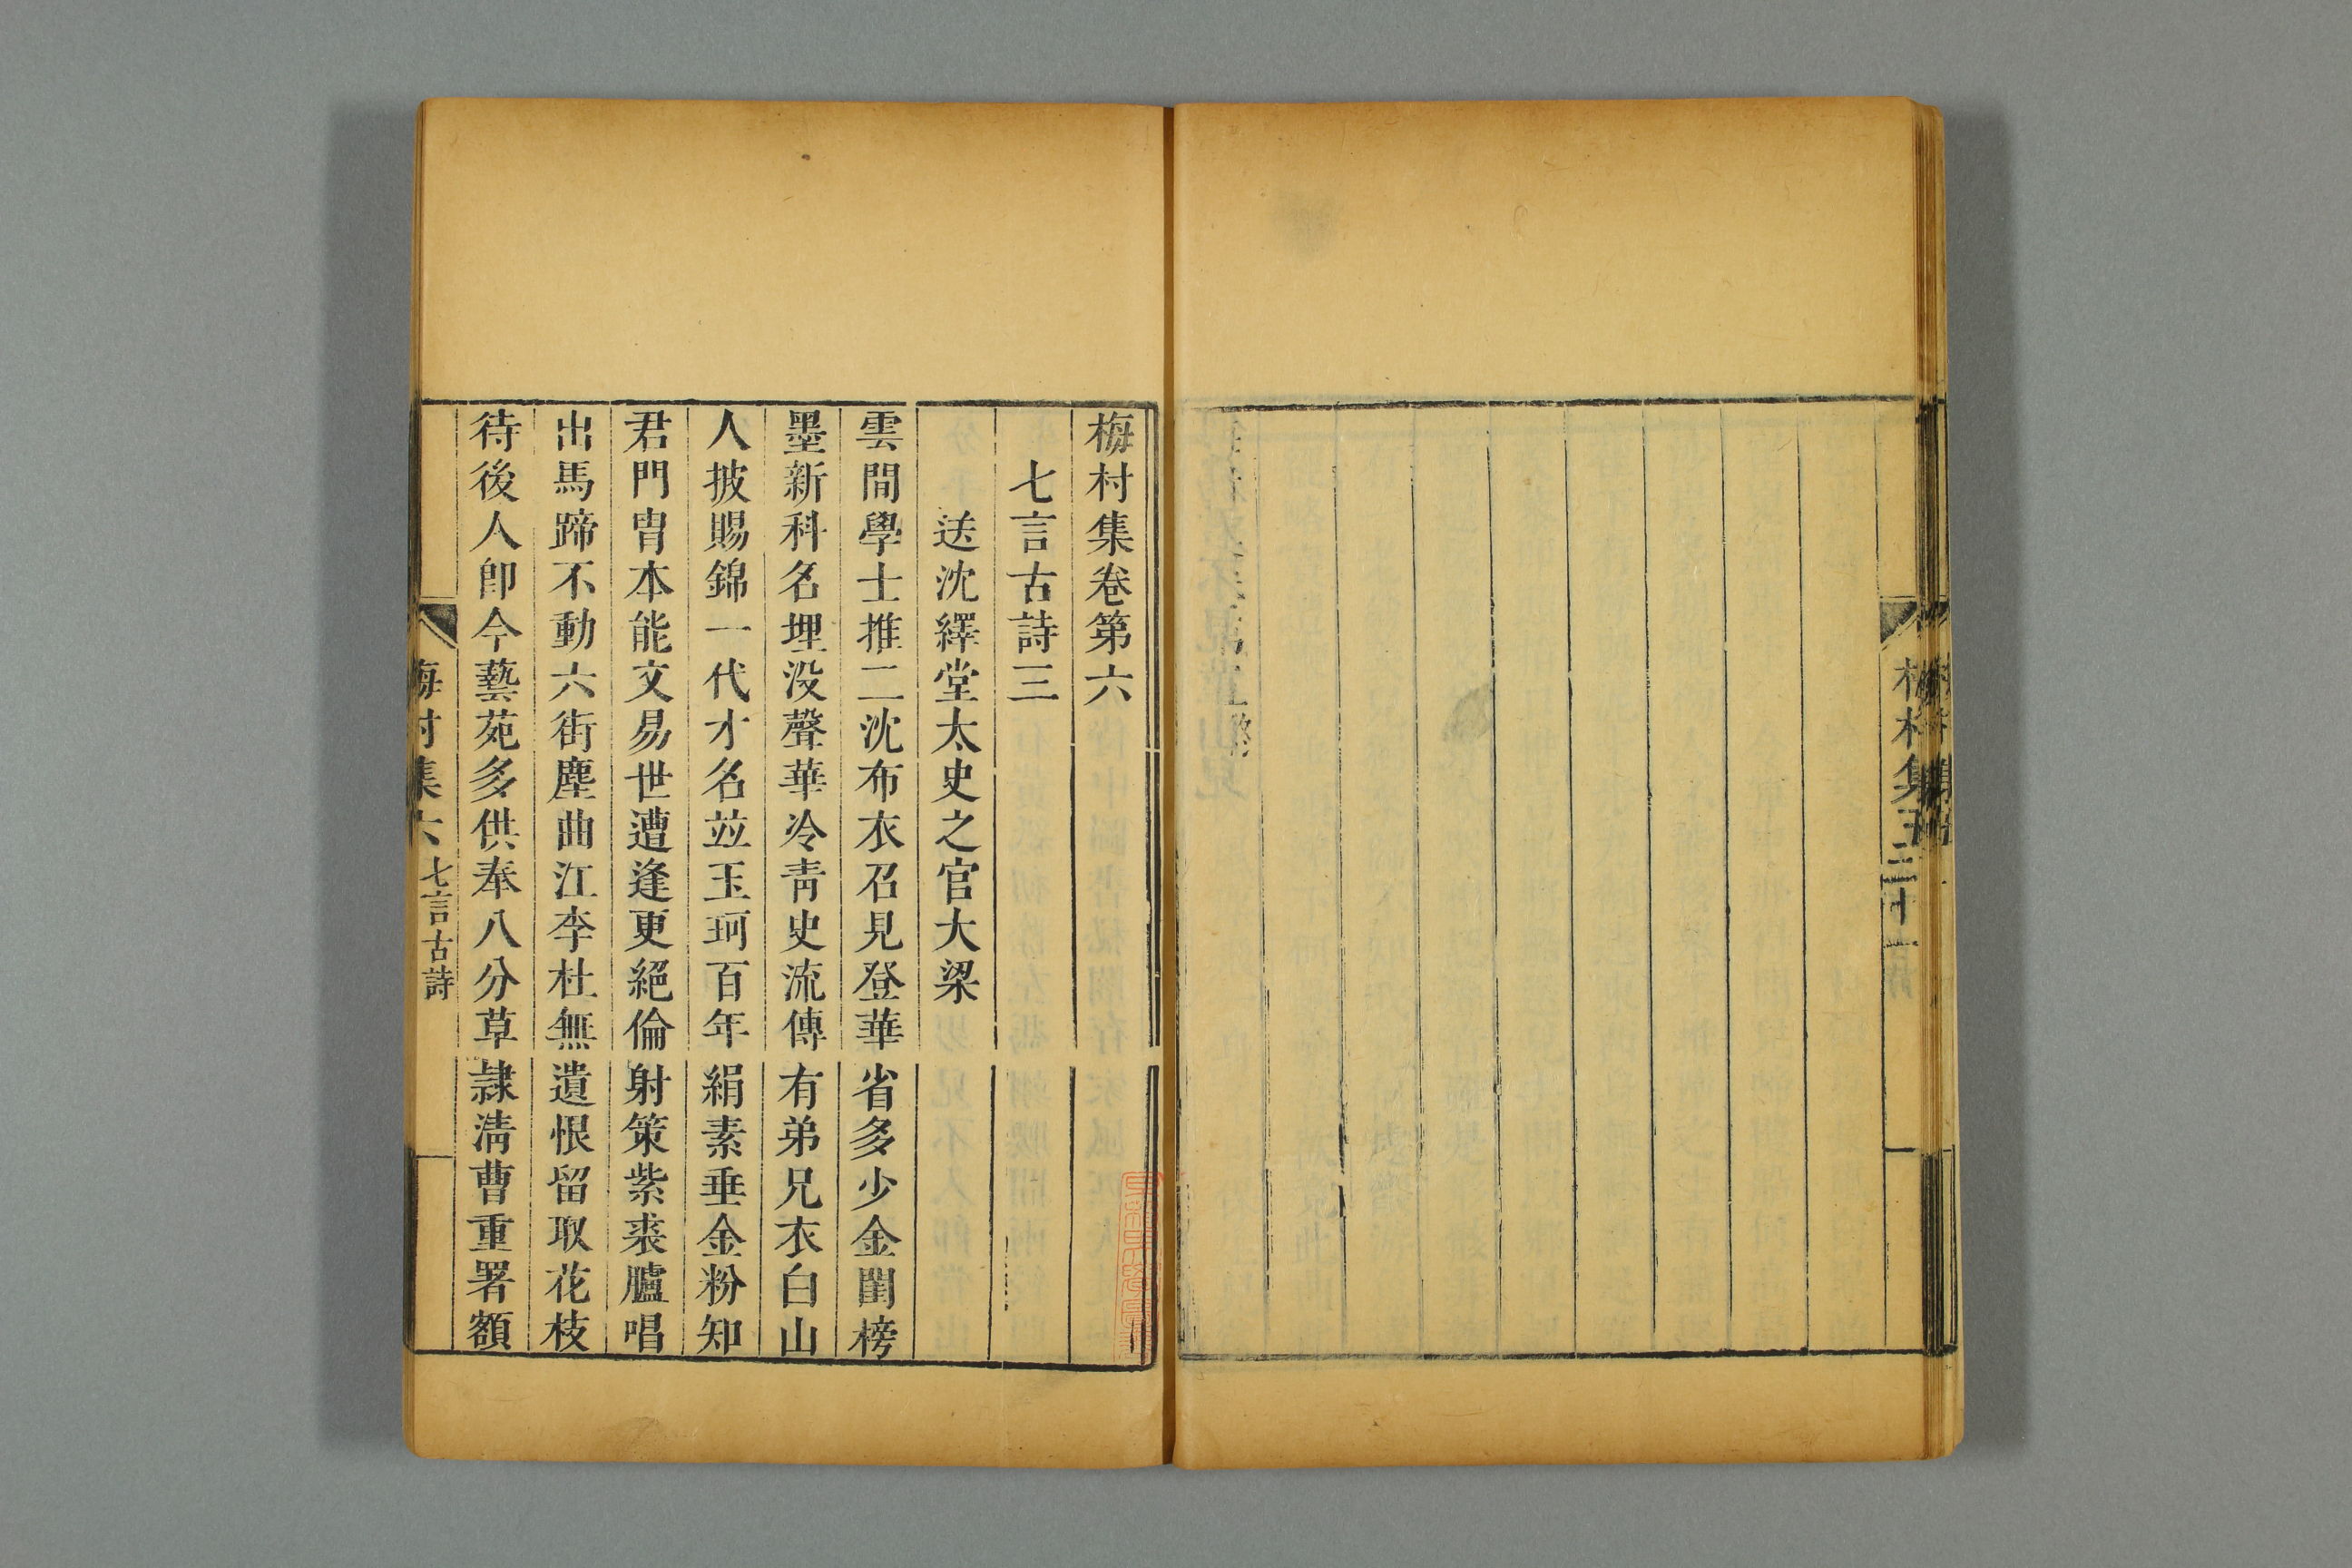 梅村集卷第六
七言古詩三
送沈繹堂太史之官大梁
雲間學士推二沈布衣召見登華省多少金閨榜
墨新科名埋没聲華冷靑史流傳有弟兄衣白山
人披賜錦一代才名竝玉珂百年絹素垂金粉知
君門胄本能文易世遭逢更絕倫射策紫裘臚唱
出馬蹄不動六街塵曲江李杜無遺恨留取花枝
待後人卽今藝苑多供奉八分草隷淸曹重署額
梅村集六 七言古詩